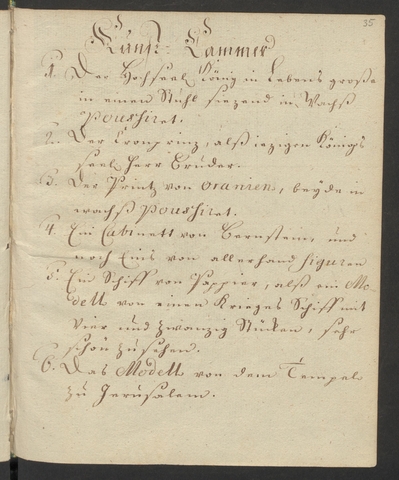 35
Kunst-Cammer
1. Der Hochseel. König in Lebens große
in einen Stuhl sizend in Wachß
Poussiret.
2. Der Cron prinz, alß iezigen Königs
seel. Herr Bruder.
3. Der Printz von Oranien, beyde in
wachß Poussiret.
4. Ein Cabinett von Bernstein, und
noch Eins von allerhand figuren
5. Ein Schiff von Pappier, alß ein Mo-
dell von einen Krieges Schiff mit
vier und zwanzig Stücken, sehr
schön zu sehen.
6. Das Modell von dem Tempel
zu Jerusalem.